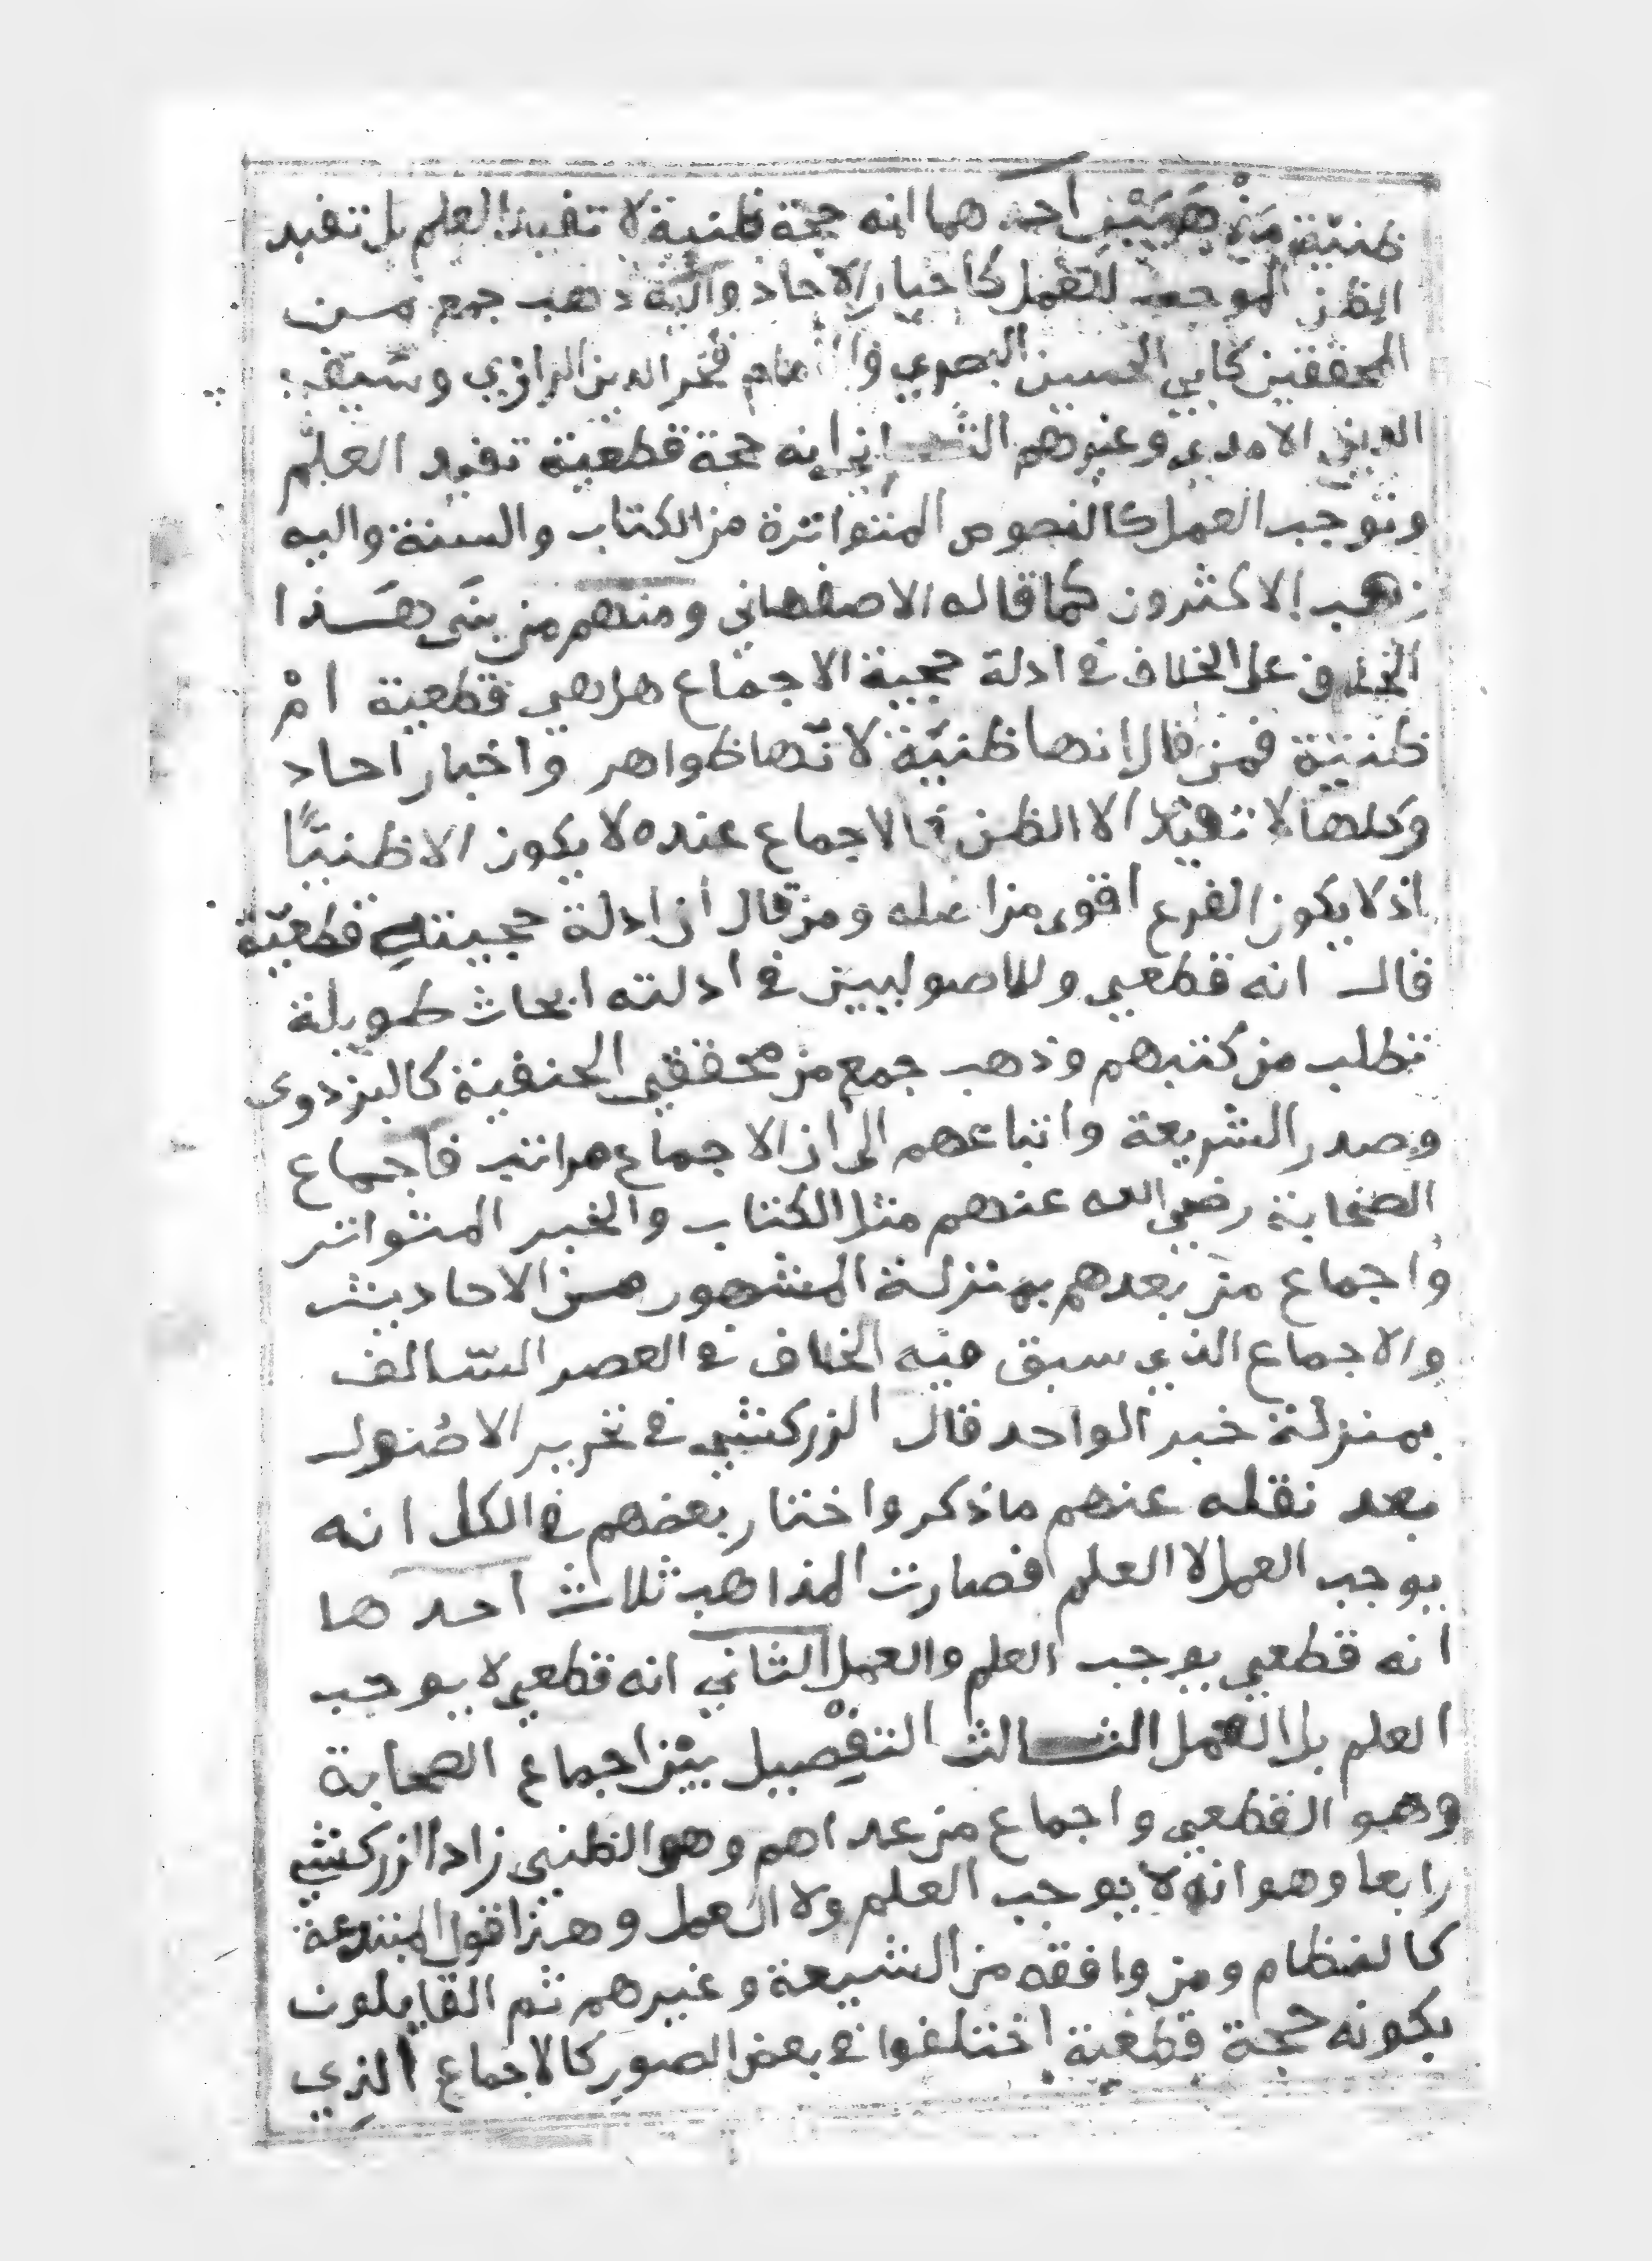 ظنية مذهبين احدهما انه حجة ظنية لا تفيد العلم بل تفيد
الظن الموجب للعمل كاخبار الاحاد واليه ذهب جمع من
المحققين كابي الحسين البصري والامام فخر الدين الرازي وسيف
الدين الامدي وغيرهم الثاني انه حجة قطعية تفيد العلم
وتوجب العمل كالنصوص المتواترة من الكتاب والسنة واليه
ذهب الاكثرون كما قاله الاصفهاني ومنهم من بنى هذا
الخلاف على الخلاف في ادلة حجية الاجماع هل هي قطعية امْ
ظنية فمن قال انها ظنيّة لانّها ظواهر واخبار احاد
وكلها لا تفيد الا الظن فالاجماع عنده لا يكون الا ظنيًّا
اذ لا يكون الفرع اقوى من اصله ومن قال ان ادلة حجيته قطعيّة
قال انه قطعي وللاصوليين في ادلته ابحاث طويلة
تطلب من كتبهم وذهب جمع من محققي الحنفية كالبزدوى
وصدر الشريعة واتباعهم الى ان الاجماع مراتب فاجماع
الصحابة رضي الله عنهم مثل الكتاب والخبر المتواتر
واجماع من بعدهم بمنزلة المشهور من الاحاديث
والاجماع الذي سبق فيه الخلاف في العصر السّالف
بمنزلة خبر الواحد قال الزركشي في تحرير الاصُول
بعد نقله عنهم ما ذكر واختار بعضهم في الكل انه
يوجب العمل لا العلم فصارت المذاهب ثلاث احدها
انه قطعي يوجب العلم والعمل الثاني انه قطعي لا يوجب
العلم بل العمل الثالث التفْصِيل بيْن اجماع الصحابة
وهو القطعي واجماع من عداهم وهو الظني زاد الزركشي
رابعا وهو انه لا يوجب العلم ولا العمل وهذا قول المبتدعة
كالنظام ومن وافقه من الشيعة وغيرهم ثم القايلون
بكونه حجة قطعية اختلفوا في بعض الصور كالاجماع الذي